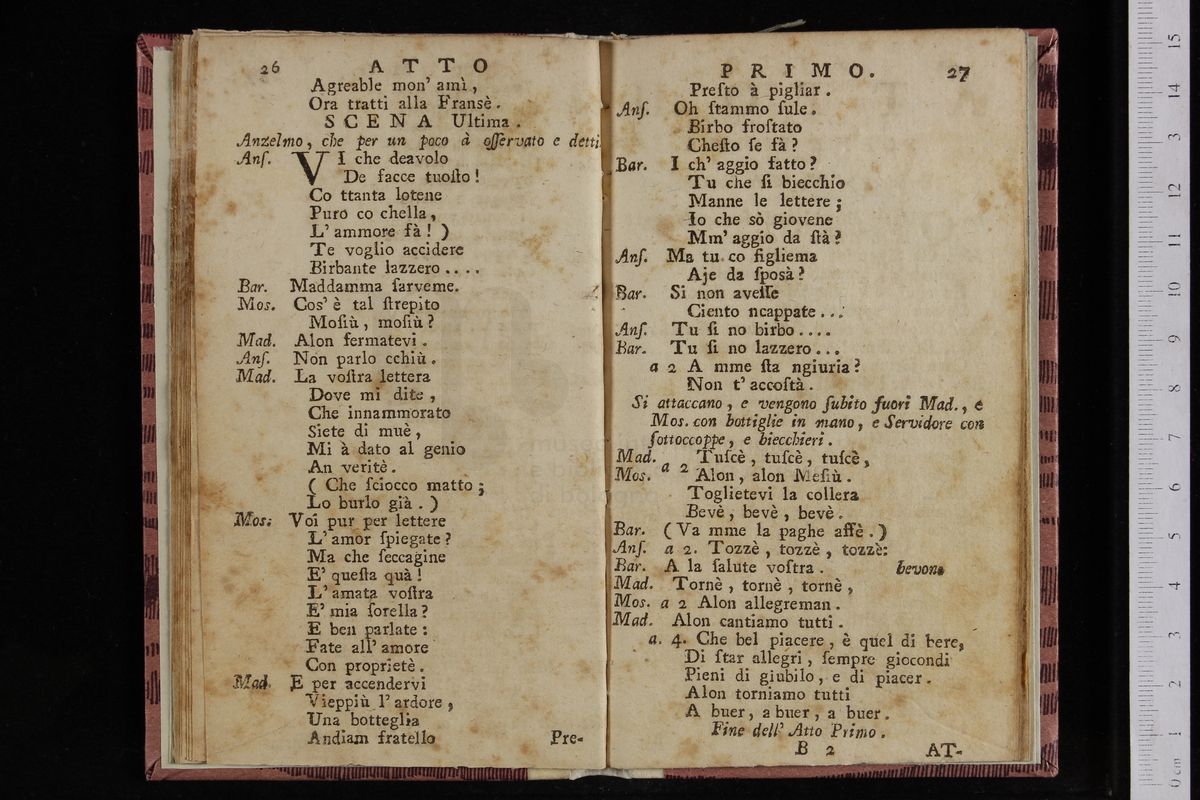 26 ATTO
Agreable mon' amì,
Ora tratti alla Fransè.
SCENA Ultima.
Anzelmo, che per un poco à oſſervato e detti.
Anſ. VI che deavolo
De facce tuoſto!
Co ttanta lotene
Puro co chella,
L' ammore fà! )
Te voglio accidere
Birbante lazzero ....
Bar. Maddamma ſarveme.
Mos. Cos' è tal ſtrepito
Moſiù, moſiù?
Mad. Alon fermatevi.
Anſ. Non parlo cchiù.
Mad. La voſtra lettera
Dove mi dite,
Che innammorato
Siete di muè,
Mi à dato al genio
An veritè.
( Che ſciocco matto;
Lo burlo già. )
Mos: Voi pur per lettere
L' amor ſpiegate?
Ma che ſeccagine
E' queſta quà!
L' amata voſtra
E' mia ſorella?
E ben parlate:
Fate all' amore
Con proprietè.
Mad. E per accendervi
Vieppiù l' ardore,
Una botteglia
Andiam fratello
Pre-
PRIMO. 27
Preſto à pigliar.
Anſ. Oh ſtammo ſule.
Birbo froſtato
Cheſto ſe fà?
Bar. I ch' aggio fatto?
Tu che ſi biecchio
Manne le lettere;
Io che sò giovene
Mm' aggio da ſtà?
Anſ. Ma tu co figliema
Aje da ſposà?
Bar. Si non aveſſe
Ciento ncappate ...
Anſ. Tu ſi no birbo ....
Bar. Tu ſi no lazzero ...
a 2 A mme ſta ngiuria?
Non t' accoſtà.
Si attaccano, e vengono ſubito fuori Mad., e
Mos. con bottiglie in mano, e Servidore con
ſottoccoppe, e biecchieri.
Mad. Tuſcè, tuſcè, tuſcè,
Mos. a 2 Alon, alon Meſiù.
Toglietevi la collera
Bevè, bevè, bevè.
Bar. ( Va mme la paghe affè. )
Anſ. a 2. Tozzè, tozzè, tozzè:
Bar. A la ſalute voſtra. bevono
Mad. Tornè, tornè, tornè,
Mos. a 2 Alon allegreman.
Mad. Alon cantiamo tutti.
a. 4. Che bel piacere, è quel di bere,
Di ſtar allegri, ſempre giocondi
Pieni di giubilo, e di piacer.
Alon torniamo tutti
A buer, a buer, a buer.
Fine dell' Atto Primo.
B 2 AT-
0 cm 1 2 3 4 5 6 7 8 9 10 11 12 13 14 15